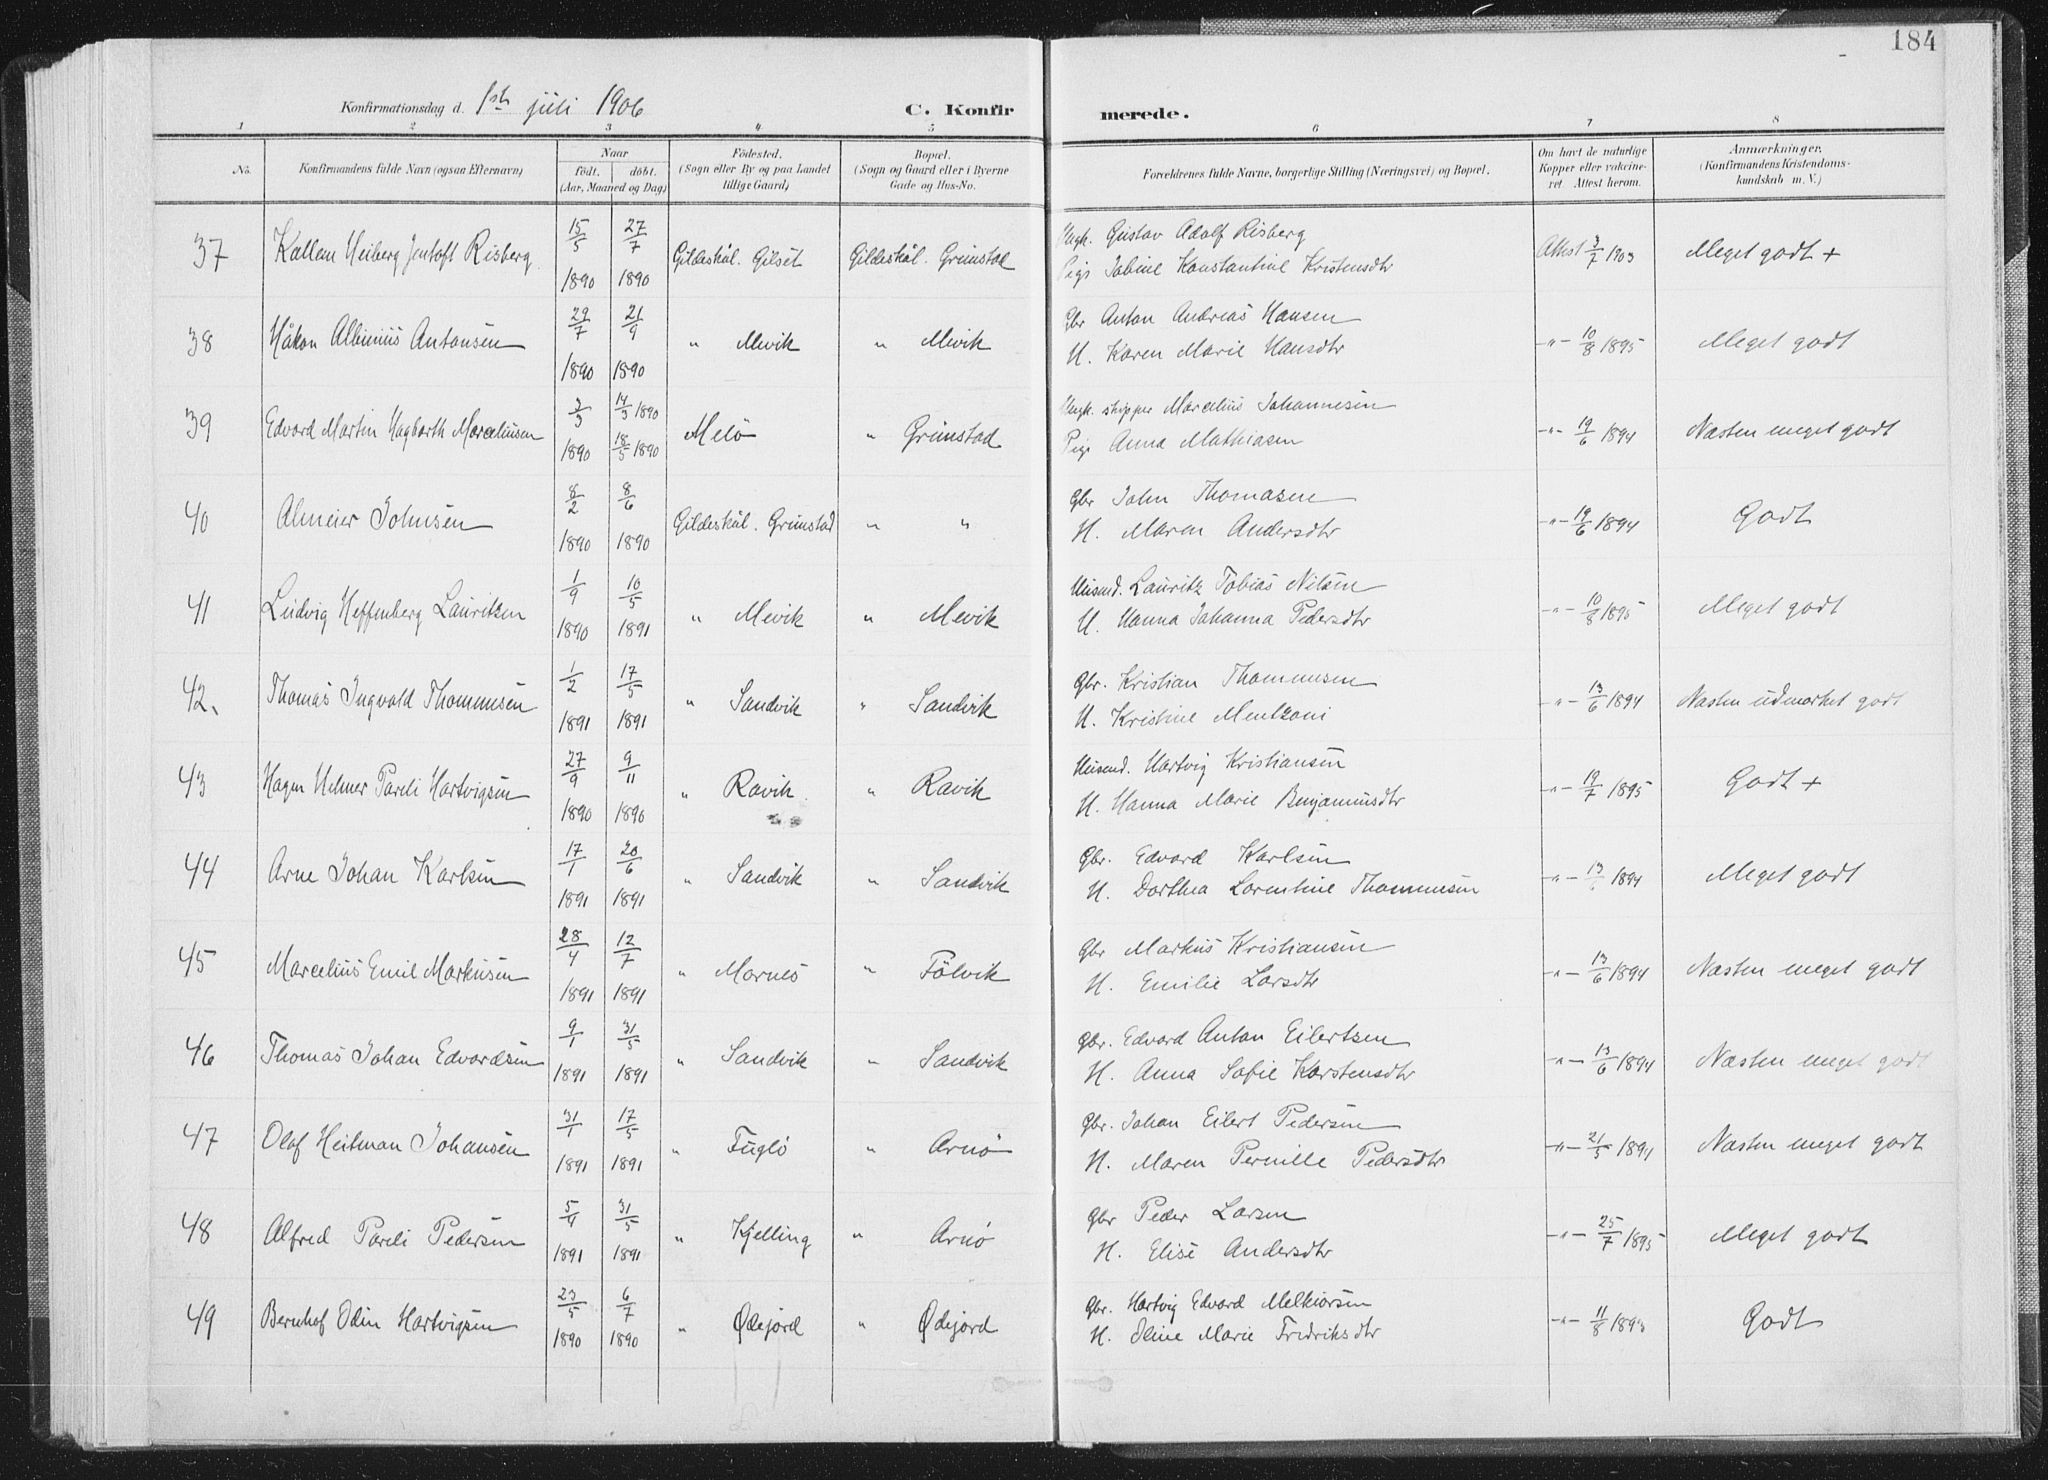 184
Konfirmationsdag d. 1ste juli 1906
C. Konfir merede.
1 2 3 4 5 6 7 8
No. Konfirmandens fulde Navn (ogsaa Efternavn) Naar født. døbt. (Aar, Maaned og Dag) Fødested. (Sogn eller By og paa Landet tillige Gaard) Bopæl. (Sogn og Gaard eller i Byerne Gade og Hus-No. Forældrenes fulde Navne, borgerlige Stilling (Næringsvei) og Bopæl. Om havt de naturlige Kopper eller vakcineret. Attest herom. Anmærkninger. (Konfirmandens Kristendomskundskab m. V.)
37 Kallem Heiberg Jentoft Risberg 15/5 1890 27/7 1890 Gildeskål. Gilset Gildeskål. Grimstad Ungk. Gustav Adolf Risberg Attest 3/7 1903 Meget godt +
Pige Jabine Konstantine Kristensdtr
38 Håkon Albinius Antonsen 29/7 1890 21/9 1890 " Mevik " Mevik Gbr Anton Andreas Hansen -"- 10/8 1895 Meget godt
H. Karen Marie Hansdtr
39 Edvard Martin Hagbarth Marceliusen 3/3 1890 14/3 1890 18/5 1890 Melö " Grimstad Ungk. skipper Marcelius Johannesen -"- 19/6 1894 Næsten meget godt
Pige Anna Mathiasen
40 Almeier Johnsen 8/2 1890 8/6 1890 Gildeskål. Grimstad " " Gbr John Thomasen -"- 19/6 1894 Godt
H. Maren Andersdtr
41 Ludvig Heffenberg Lauritzen 1/9 1890 10/5 1891 " Mevik " Mevik Husmd. Lauritz Tobias Nilsen -"- 10/8 1895 Meget godt
H. Hanna Johanna Pedersdtr
42. Thomas Ingvald Thommesen 1/2 1891 17/5 1891 " Sandvik " Sandvik Gbr. Kristian Thommesen -"- 13/6 1894 Næsten udmærket godt
H. Kristine Mentzoni
43 Hagen Helmer Pareli Hartvigsen 27/9 1890 9/11 1890 " Ravik " Ravik Husmd. Hartvig Kristiansen -"- 19/7 1895 Godt +
H. Hanna Marie Benjaminsdtr
44 Arne Johan Karlsen 17/1 1891 20/6 1891 " Sandvik " Sandvik Gbr. Edvard Karlsen -"- 13/6 1894 Meget godt
H. Dorthea Lorentine Thommesen
45 Marcelius Emil Markusen 28/4 1891 12/7 1891 " Mornes " Fölvik Gbr Markus Kristiansen -"- 13/6 1894 Næsten meget godt
H. Emilie Larsdtr
46 Thomas Johan Edvardsen 9/1 1891 31/5 1891 " Sandvik " Sandvik Gbr. Edvard Antan Eilertsen -"- 13/6 1894 Næsten meget godt
H. Anna Sofie Karstensdtr
47 Olaf Heitman Johansen 31/1 1891 17/5 1891 " Fuglö " Arnö Gbr. Johan Eilert Pedersen -"- 21/5 1894 Næsten meget godt
H. Maren Pernille Pedersdtr
48 Alfred Pareli Pedersen 5/4 1891 31/5 1891 " Kjelling " Arnö Gbr Peder Larsen -"- 25/7 1895 Meget godt
H. Elise Andersdtr
49 Bernhof Odin Hartvigsen 23/5 1890 6/7 1890 " Ødejord " Ødejord Gbr. Hartvig Edvard Melkiorsen -"- 11/8 1893 Godt
H. Oline Marie Fredriksdtr